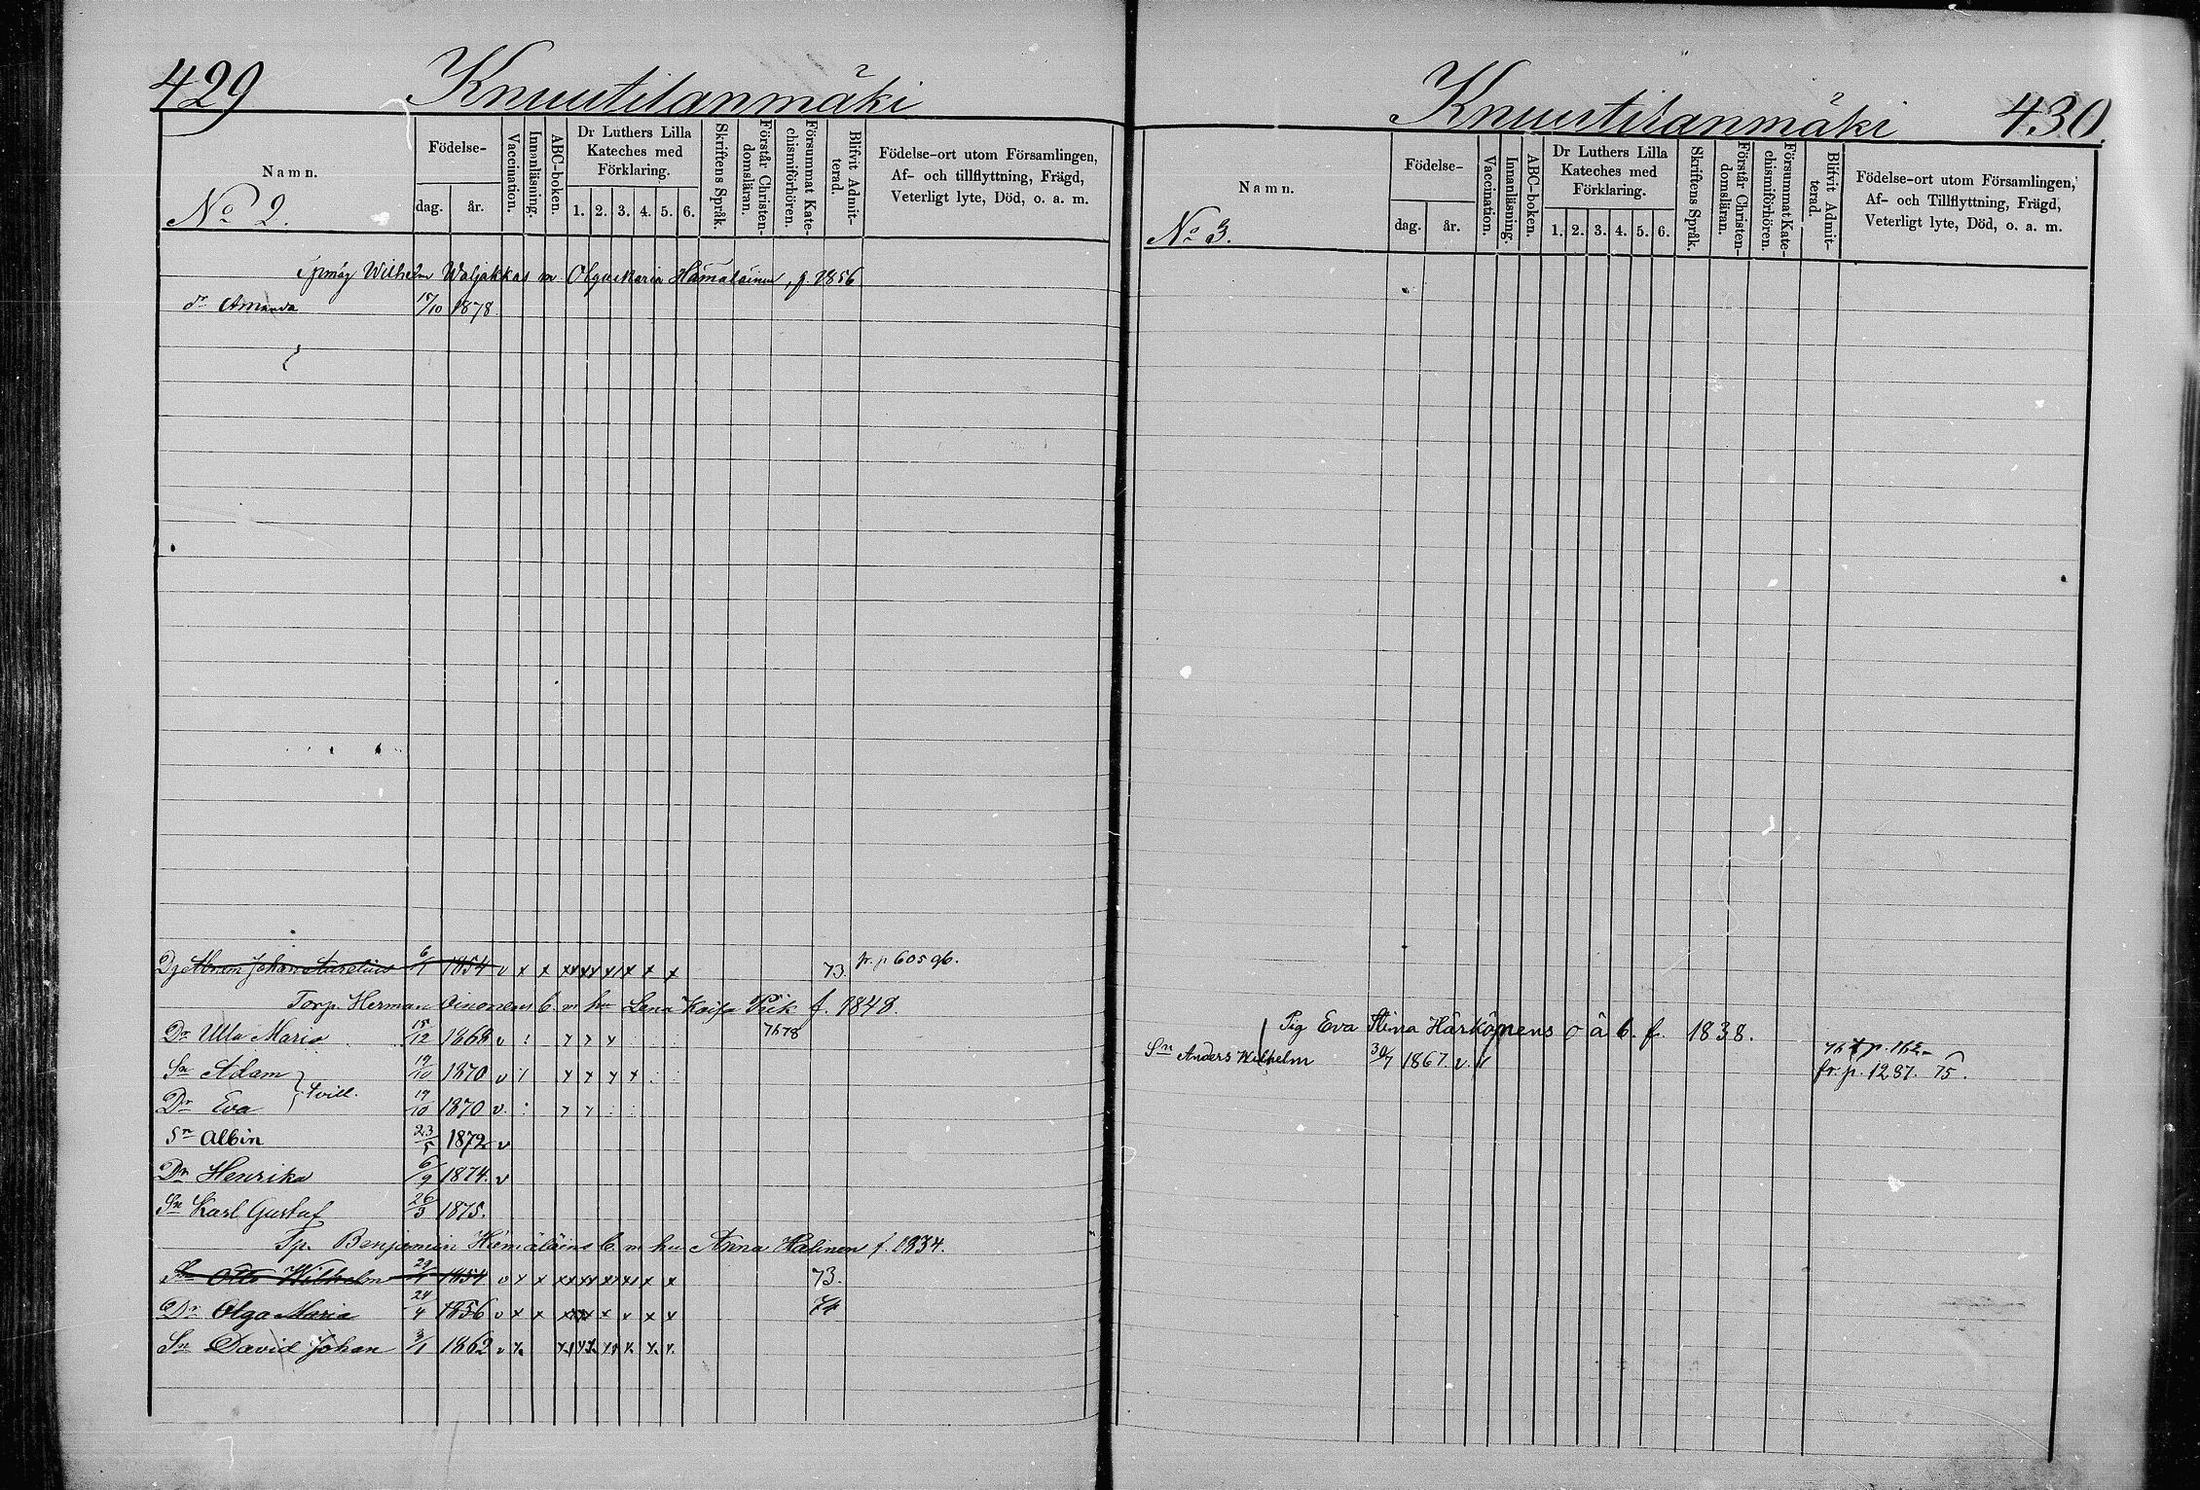 429 Knuutilanmäki
Namn.
No 2.
Födelse-
dag. år.
Vaccination.
Innanläsning.
ABC-boken.
Dr Luthers Lilla Kateches med Förklaring.
1. 2. 3. 4. 5. 6.
Skriftens Språk.
Förstår Christendomsläran.
Försummat Katechismiförhören.
Blifvit Admitterad.
Födelse-ort utom Församlingen,
Af- och tillflyttning, Frägd,
Veterligt lyte, Död, o. a. m.
Wilhelm Waljakkas m Olga Maria Hämäläinen, f. 1856
dr Amanda 18/10 1878
Abram Johan Aurelius 6/1 1854 v x x 73.
Torp. Herman Oinonens b. m hu Lena Kaisa Piik f. 1848.
Dr Ulla Maria 15/12 1868 v 7h78
Sn Adam 19/10 1870 v
Tvill.
Dr Eva 19/10 1870 v
Sn Albin 23/5 1872 v
Dr Henrika 6/9 1874. v
Sn Karl Gustaf 1875.
Sp. Benjamin Hämäläins b. m hu Anna Halinen f. 1834.
Sn Otto Wilhelm 1854 v x x 73.
Dr Olga Maria 24/4 1856 v x x 74
Sn David Johan 3/1 1862 v x
Knuutilanmäki 430.
Namn.
No 3.
Födelse-
dag. år.
Vaccination.
Innanläsning.
ABC-boken.
Dr Luthers Lilla Kateches med Förklaring.
1. 2. 3. 4. 5. 6.
Skriftens Språk.
Förstår Christendomsläran.
Försummat Katechismiförhören.
Blifvit Admitterad.
Födelse-ort utom Församlingen,
Af- och Tillflyttning, Frägd,
Veterligt lyte, Död, o. a. m.
Pig Eva Stina Härkönens o ä b. f. 1838.
Sn Anders Wilhelm 30/7 1867. v.
fr. p. 1287. 75.